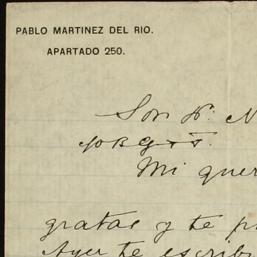 PABLO MARTINEZ DEL RIO.
APARTADO 250.
Son Dr. N
Mi quer
gratas y te p
Ayer te escrib